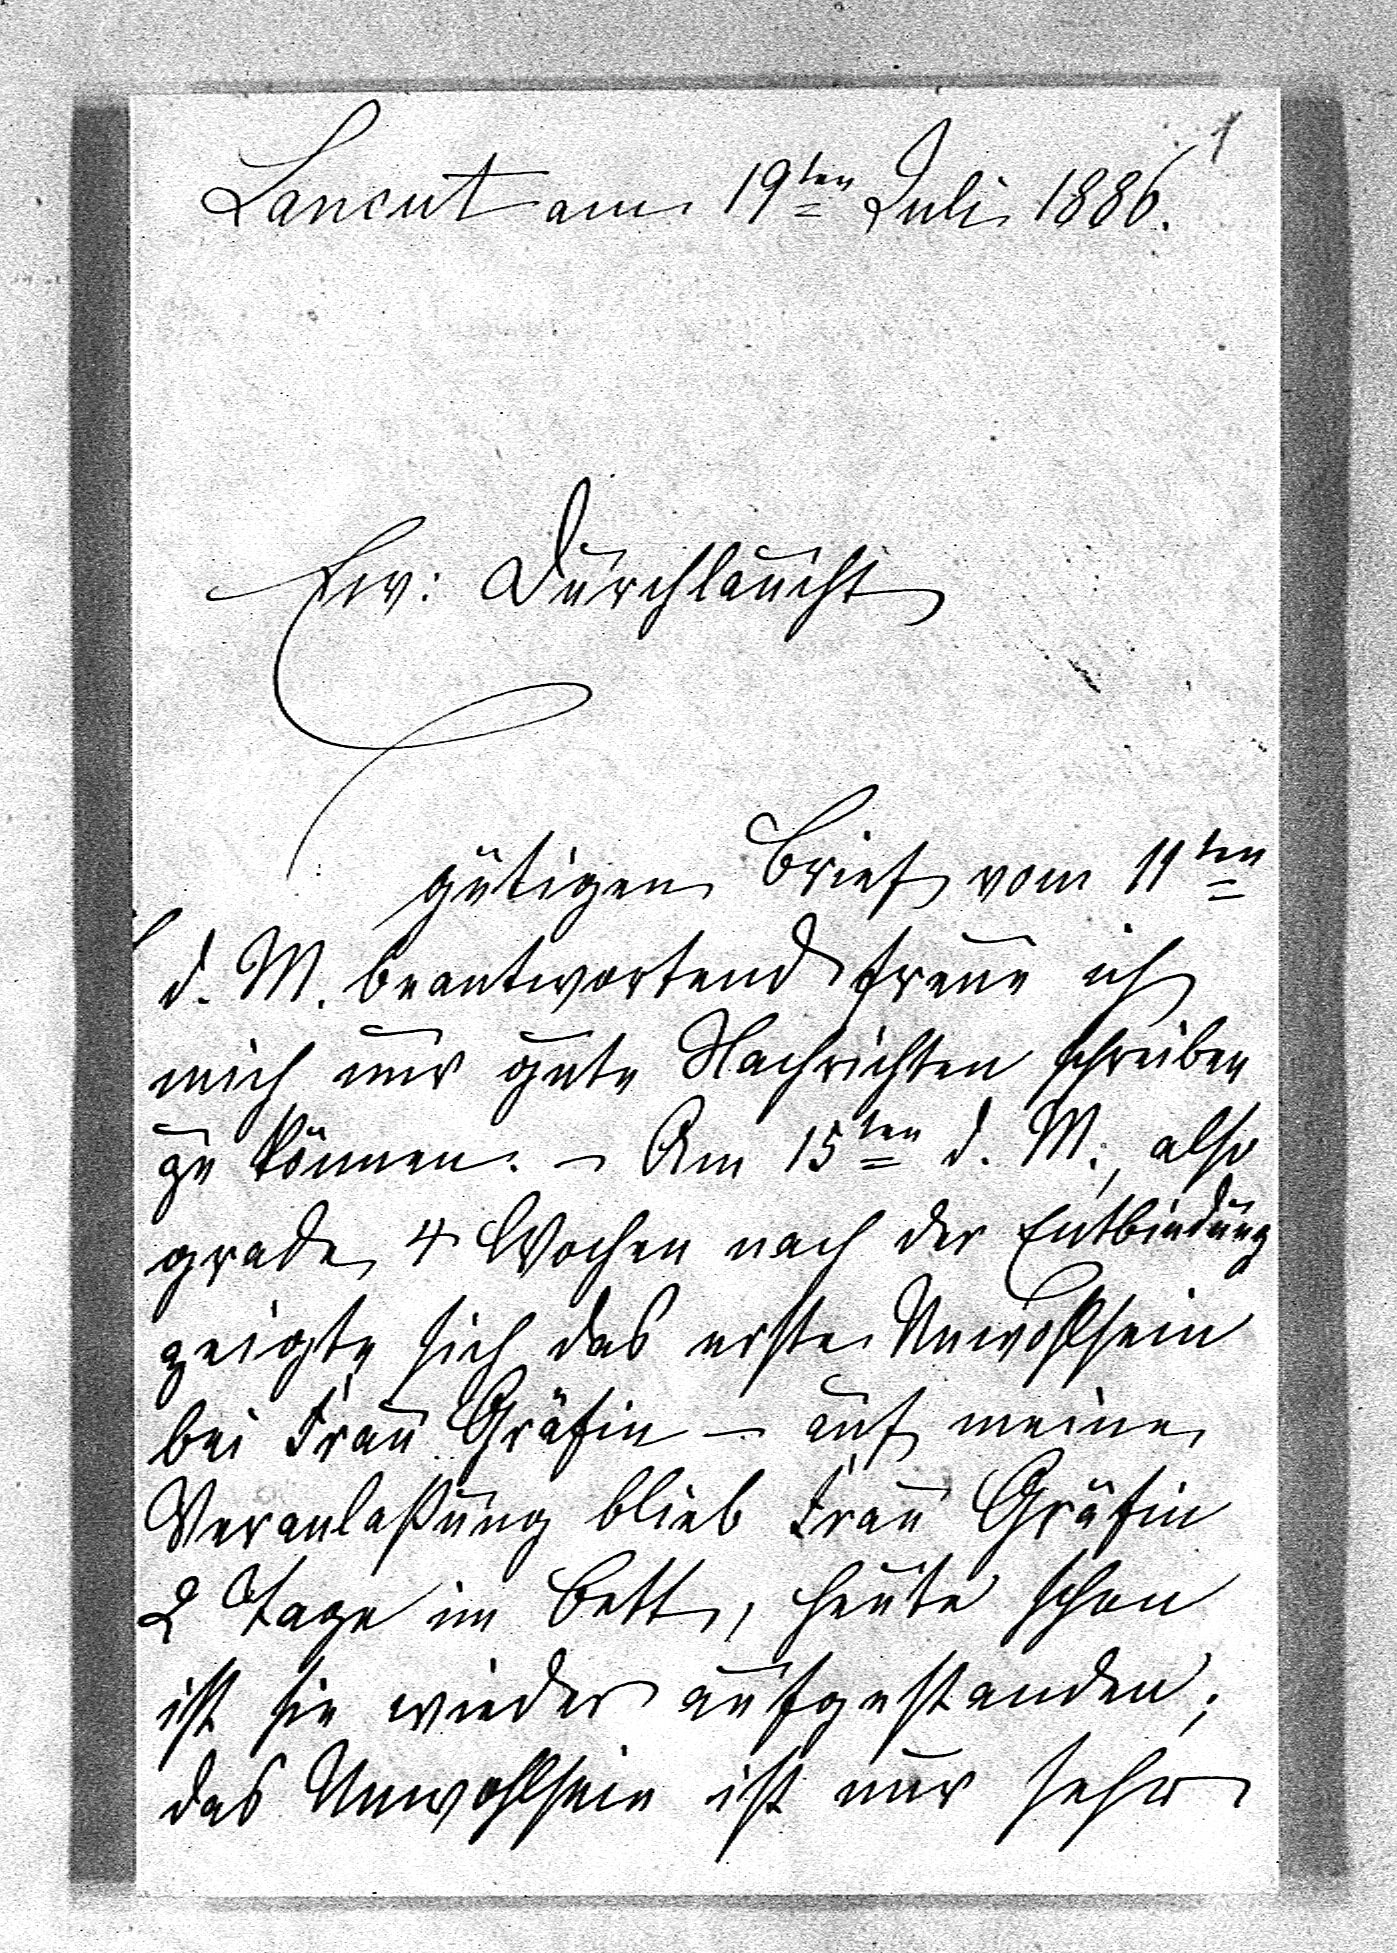 1
Lancut am 19ten Juli 1886.
Ew: Durchlaucht
gütigen Brief vom 11ten
d. M. beantwortend freue ich
mich nur gute Nachrichten schreiben
zu können. – Am 15ten d. M., also
grade 4 Wochen nach der Entbindung
zeigte sich das erste Unwohlsein
bei Frau Gräfin – auf meine
Veranlaßung blieb Frau Gräfin
2 Tage im Bett, heute schon
ist sie wieder aufgestanden;
das Unwohlsein ist nur sehr